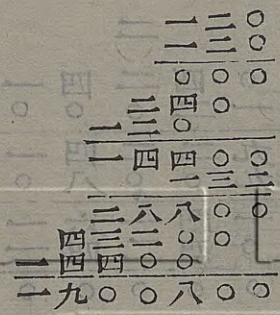 一二〇
一二〇
〇〇〇
二四〇
一二〇
一四四〇〇
一三二
二八八〇〇
四三二〇〇
一四四〇〇
一九〇〇八〇〇